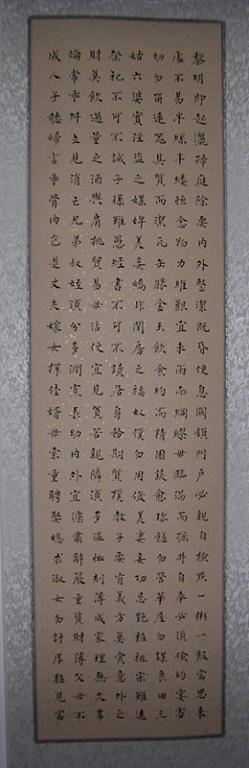 黎明即起灑掃庭除要內外整潔既昏便息關鎖門戶必親自檢點一粥一飯當思來
處不易半絲半縷恆念物力維艱宜未雨而綢繆毋臨渴而掘井自奉必須儉約宴客
切勿留連器具質而潔瓦缶勝金玉飲食約而精園蔬愈珍饈勿營華屋勿謀良田三
姑六婆實淫盜之媒婢美妾嬌非閨房之福奴僕勿用俊美妻妾切忌艷粧祖宗雖遠
祭祀不可不誠子孫雖愚經書不可不讀居身務期質樸教子要有義方莫貪意外之
財莫飲過量之酒與肩挑貿易毋佔便宜見貧苦親鄰須多溫恤刻薄成家理無久享
倫常乖舛立見消亡兄弟叔姪須分多潤寡長幼內外宜法肅辭嚴重資財薄父母不
成人子聽婦言乖骨肉豈是丈夫嫁女擇佳婿毋索重聘娶媳求淑女勿計厚奩見富